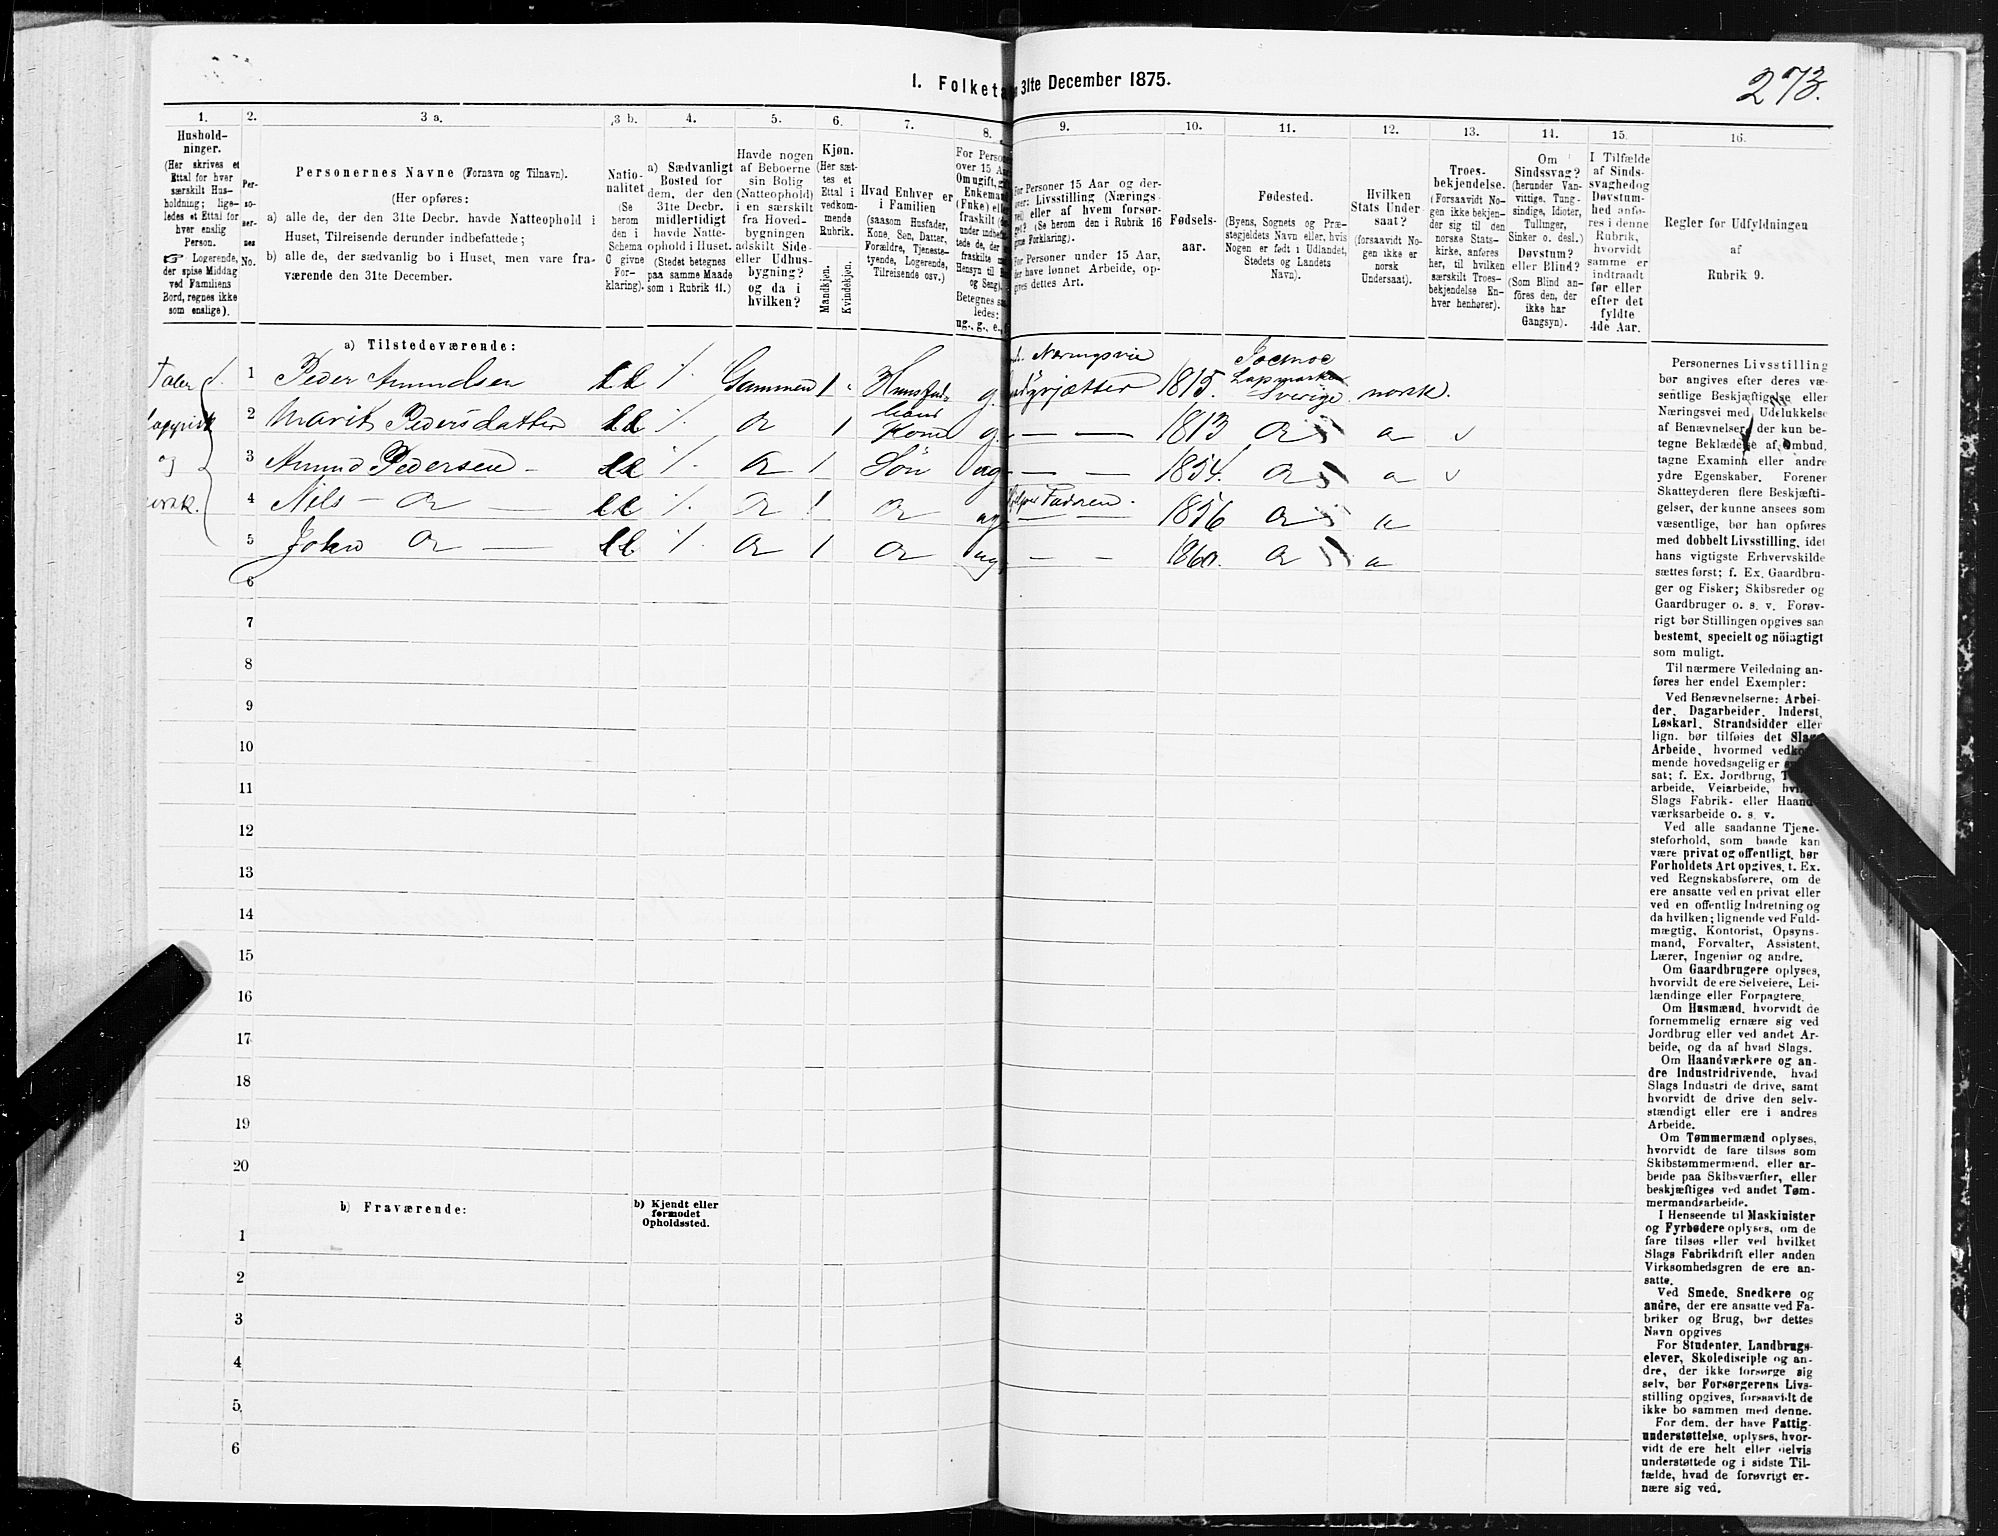 I. Folketa 31te December 1875.
273.
1.
Hushold-
ninger.
(Her skrives et
Ettal for hver
særskilt Hus-
holdning; lige-
ledes et Ettal for
hver enslig
Person.
☞ Logerende,
der spise Middag
ved Familiens
Bord, regnes ikke
som enslige).
2.
Per-
so-
ner-
nes
No.
3 a.
Personernes Navne (Fornavn og Tilnavn).
(Her opføres:
a) alle de, der den 31te Decbr. havde Natteophold i
Huset, Tilreisende derunder indbefattede;
b) alle de, der sædvanlig bo i Huset, men vare fra-
værende den 31te December.
3 b.
Natio-
nalitet
(Se
herom
den i
Schema
C givne
For-
klaring).
4.
a) Sædvanligt
Bosted for
dem, der den
31te Decbr.
midlertidigt
havde Natte-
ophold i Huset.
(Stedet betegnes
paa samme Maade
som i Rubrik 11.)
5.
Havde nogen
af Beboerne
sin Bolig
(Natteophold)
i en særskilt
fra Hoved-
bygningen
adskilt Side-
eller Udhus-
bygning?
og da i
hvilken?
6.
Kjøn.
(Her sæt-
tes et
Ettal i
vedkom-
mende
Rubrik.
Mandkjøn.
Kvindekjøn.
7.
Hvad Enhver er
i Familien
(saasom Husfader,
Kone, Søn, Datter,
Forældre, Tjeneste-
tyende, Logerende,
Tilreisende osv.)
8.
For Person
over 15 Aa
Om ugift, g
Enkemand
(Enke) elle
fraskilt (
under indbefa
tede de, der
fraskilte m
Hensyn til B
og Seng).
Betegnes sa
ledes:
ug., g., e.,
9.
For Personer 15 Aar og der-
over: Livsstilling (Nærings
vei) eller af hvem forsør-
get? (Se herom den i Rubrik 16
givne Forklaring).
For Personer under 15 Aar,
der have lønnet Arbeide, op-
gives dettes Art.
10.
Fødsels-
aar.
11.
Fødested.
(Byens, Sognets og Præ-
stegjeldets Navn eller, hvis
Nogen er født i Udlandet,
Stedets og Landets
Navn).
12.
Hvilken
Stats Under
saat?
(forsaavidt No-
gen ikke er
norsk
Undersaat).
13.
Troes-
bekjendelse.
(Forsaavidt No-
gen ikke bekjen-
der sig til den
norske Stats-
kirke, anføres
her, til hvilken
særskilt Troes-
bekjendelse En-
hver henhører).
14.
Om
Sindssvag?
(herunder Van-
vittige, Tung-
sindige, Idioter,
Tullinger,
Sinker o. desl.)
Døvstum?
eller Blind?
(Som Blind an-
føres den, der
ikke har
Gangsyn).
15.
I Tilfælde
af Sinds-
svaghed og
Døvstum-
hed anfø-
res i denne
Rubrik,
hvorvidt
samme er
indtraadt
før eller
efter det
fyldte
4de Aar.
16.
Regler for Udfyldningen
af
Rubrik 9.
a) Tilstedeværende:
1 Peder Amundsen Gammen 1 g. Næringsvei 1815. Lapmarken Sverige norsk.
2 Marit Pedersdatter 1 Kone g. 1813
3 Amund Pedersen 1 Søn ug 1854.
4 Nils 1 ug Faderen. 1856
5 John 1 ug 1860.
Taler
og
norsk.
6
7
8
9
10
11
12
13
14
15
16
17
18
19
20
b) Fraværende:
b) Kjendt eller
formodet
Opholdssted.
1
2
3
4
5
6
Personernes Livsstilling
bør angives efter deres væ-
sentlige Beskjæftigelse eller
Næringsvei med Udelukkelse
af Benævnelser, der kun be-
tegne Beklædelse af Ombud,
tagne Examina eller andre
ydre Egenskaber. Forener
Skatteyderen flere Beskjæfti-
gelser, der kunne ansees som
væsentlige, bør han opføres
med dobbelt Livsstilling, idet
hans vigtigste Erhvervskilde
sættes først; f. Ex. Gaardbru-
ger og Fisker; Skibsreder og
Gaardbruger o. s. v. Forøv-
rigt bør Stillingen opgives saa
bestemt, specielt og nöiagtigt
som muligt.
Til nærmere Veiledning an-
føres her endel Exempler:
Ved Benævnelserne: Arbei-
der, Dagarbeider, Inderst,
Løskarl, Strandsidder eller
lign. bør tilføies det Slags
Arbeide, hvormed vedkom-
mende hovedsagelig er
sat; f. Ex. Jordbrug, T
arbeide, Veiarbeide, hvil
Slags Fabrik- eller Haand-
værksarbeide o. s. v.
Ved alle saadanne Tjene-
steforhold, som baade kan
være privat og offentligt, bør
Forholdets Art opgives, t. Ex.
ved Regnskabsførere, om de
ere ansatte ved en privat eller
ved en offentlig Indretning og
da hvilken; lignende ved Fuld-
mægtig, Kontorist, Opsyns-
mand, Forvalter, Assistent,
Lærer, Ingeniør og andre.
Om Gaardbrugere oplyses,
hvorvidt de ere Selveiere, Lei-
lændinge eller Forpagtere.
Om Husmænd, hvorvidt de
fornemmelig ernære sig ved
Jordbrug eller ved andet Ar-
beide, og da af hvad Slags.
Om Haandværkere og an-
dre Industridrivende, hvad
Slags Industri de drive, samt
hvorvidt de drive den selv-
stændigt eller ere i andres
Arbeide.
Om Tømmermænd oplyses,
hvorvidt de fare tilsøs som
Skibstømmermænd, eller ar-
beide paa Skibsværfter, eller
beskjæftiges ved andet Tøm-
mermandsarbeide.
I Henseende til Maskinister
og Fyrbødere oplyses, om de
fare tilsøs eller ved hvilket
Slags Fabrikdrift eller anden
Virksomhedsgren de ere an-
satte.
Ved Smede, Snedkere og
andre, der ere ansatte ved Fa-
briker og Brug, bør dettes
Navn opgives
For Studenter, Landbrugs-
elever, Skoledisciple og an-
dre, der ikke forsørge sig
selv, bør Forsørgerens Livs-
stilling opgives, forsaavidt de
ikke bo sammen med denne.
For dem, der have Fattig-
understøttelse, oplyses, hvor-
vidt de ere helt eller delvis
understøttede og i sidste Til-
fælde, hvad de forøvrigt er-
nære sig ved.